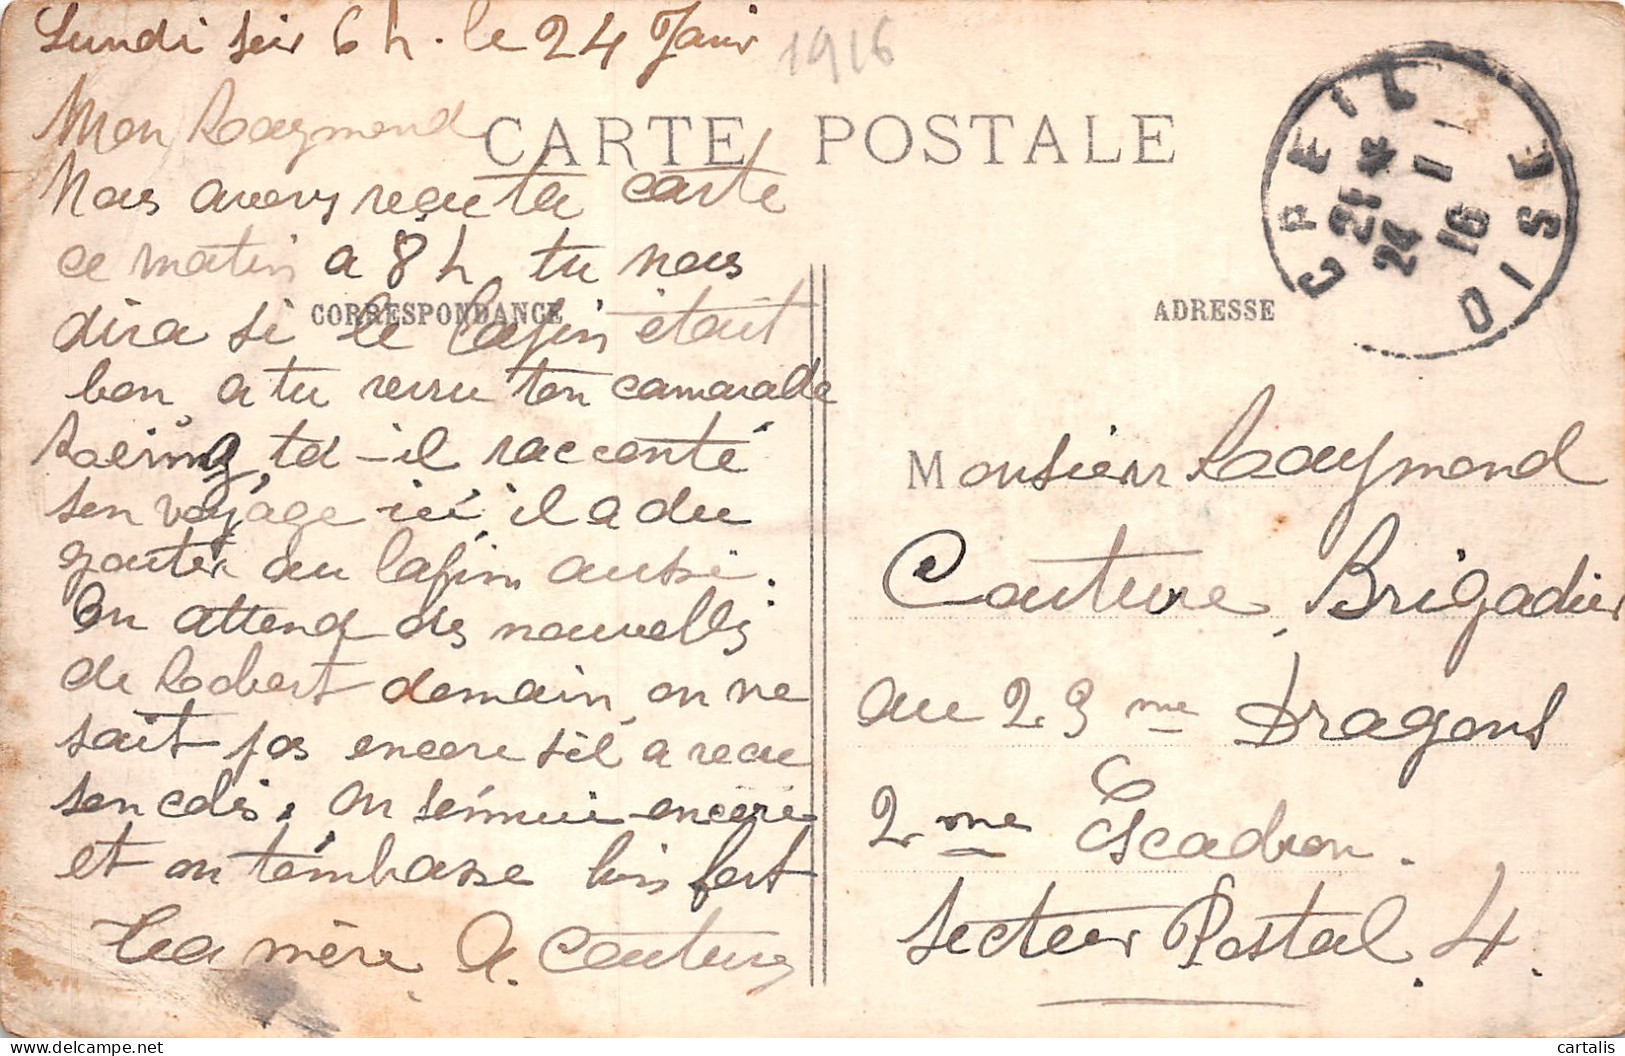 Lundi soir 6 h. le 24 Janv
1916
Mon Raymond
CARTE POSTALE
Nous avons reçu ta carte
ce matin a 8 h, tu nous
dira si le lapin était
CORRESPONDANCE
bon, a tu revu ton camarade
ta-il racconté
son voyage ici, il a du
gouter au lapin aussi.
On attend des nouvelles
de Robert demain, on ne
sait pas encore s'il a recu
son colis, on s'ennuie encore
et on t'embrasse bien fort
Ta mère A. Couture
CREIL
21 *
24 1
16
OISE
ADRESSE
Monsieur Raymond
Couture, Brigadier
au 23 me Dragons
2 me Escadron.
Secteur Postal 4.
cartalis